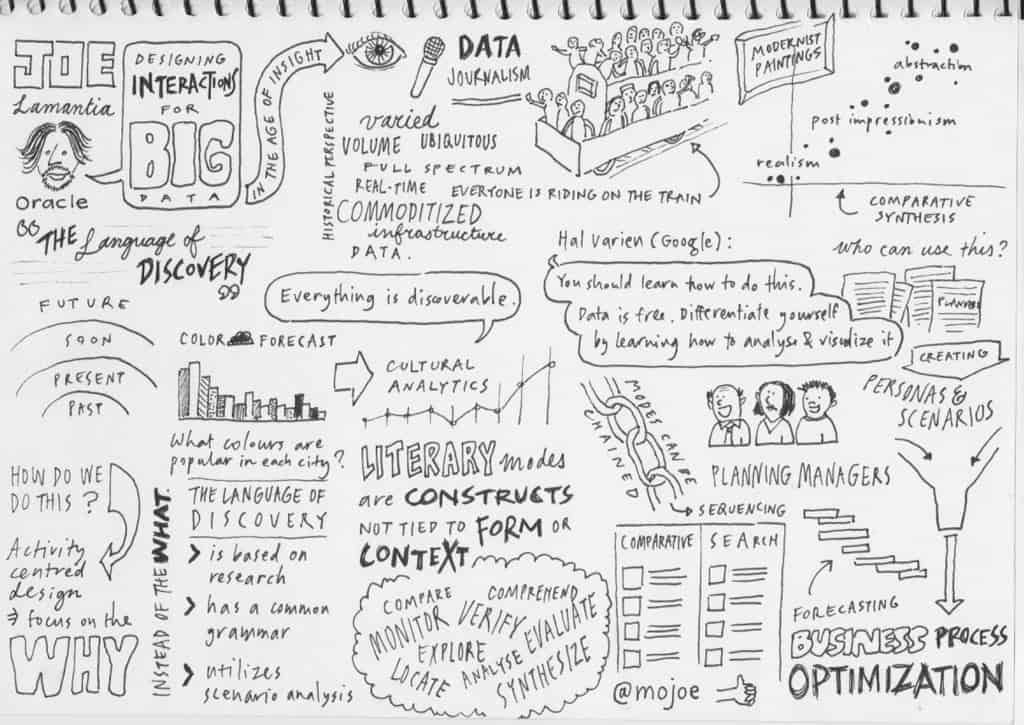 JOE
Lamantia
Oracle
DESIGNING
INTERACTIONS
FOR
BIG
DATA
IN THE AGE OF INSIGHT
"THE Language of
DISCOVERY"
HISTORICAL PERSPECTIVE
DATA
JOURNALISM
varied
VOLUME UBIQUITOUS
FULL SPECTRUM
REAL-TIME
COMMODITIZED
infrastructure
DATA.
EVERYONE IS RIDING ON THE TRAIN
MODERNIST
PAINTINGS
abstraction
post impressionism
realism
COMPARATIVE
SYNTHESIS
Everything is discoverable.
Hal Varien (Google):
You should learn how to do this.
Data is free. Differentiate yourself
by learning how to analyse & visualize it
who can use this?
PLANNER
CREATING
PERSONAS &
SCENARIOS
FUTURE
SOON
PRESENT
PAST
COLOR FORECAST
What colours are
popular in each city?
CULTURAL
ANALYTICS
LITERARY modes
are CONSTRUCTS
NOT TIED TO FORM OR
CONTEXT
MODES CAN BE
CHAINED
PLANNING MANAGERS
SEQUENCING
COMPARATIVE
SEARCH
HOW DO WE
DO THIS?
Activity
centred
design
→ focus on the
WHY
INSTEAD OF THE WHAT.
THE LANGUAGE OF
DISCOVERY
> is based on
research
> has a common
grammar
> utilizes
scenario analysis
COMPARE COMPREHEND
MONITOR VERIFY EVALUATE
EXPLORE
LOCATE ANALYSE
SYNTHESIZE
@mojoe
FORECASTING
BUSINESS PROCESS
OPTIMIZATION